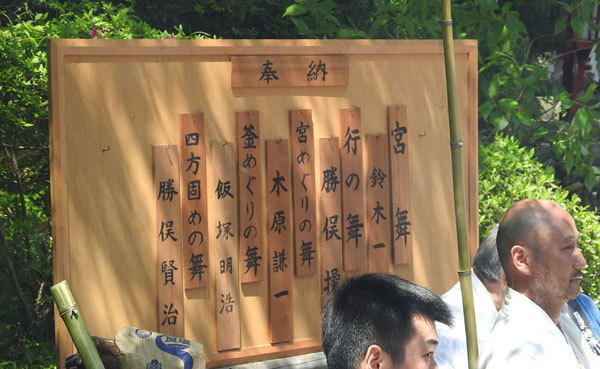 奉納
宮舞
鈴木一
行の舞
勝俣操
宮めぐりの舞
木原謙一
釜めぐりの舞
飯塚明浩
四方固めの舞
勝俣賢治